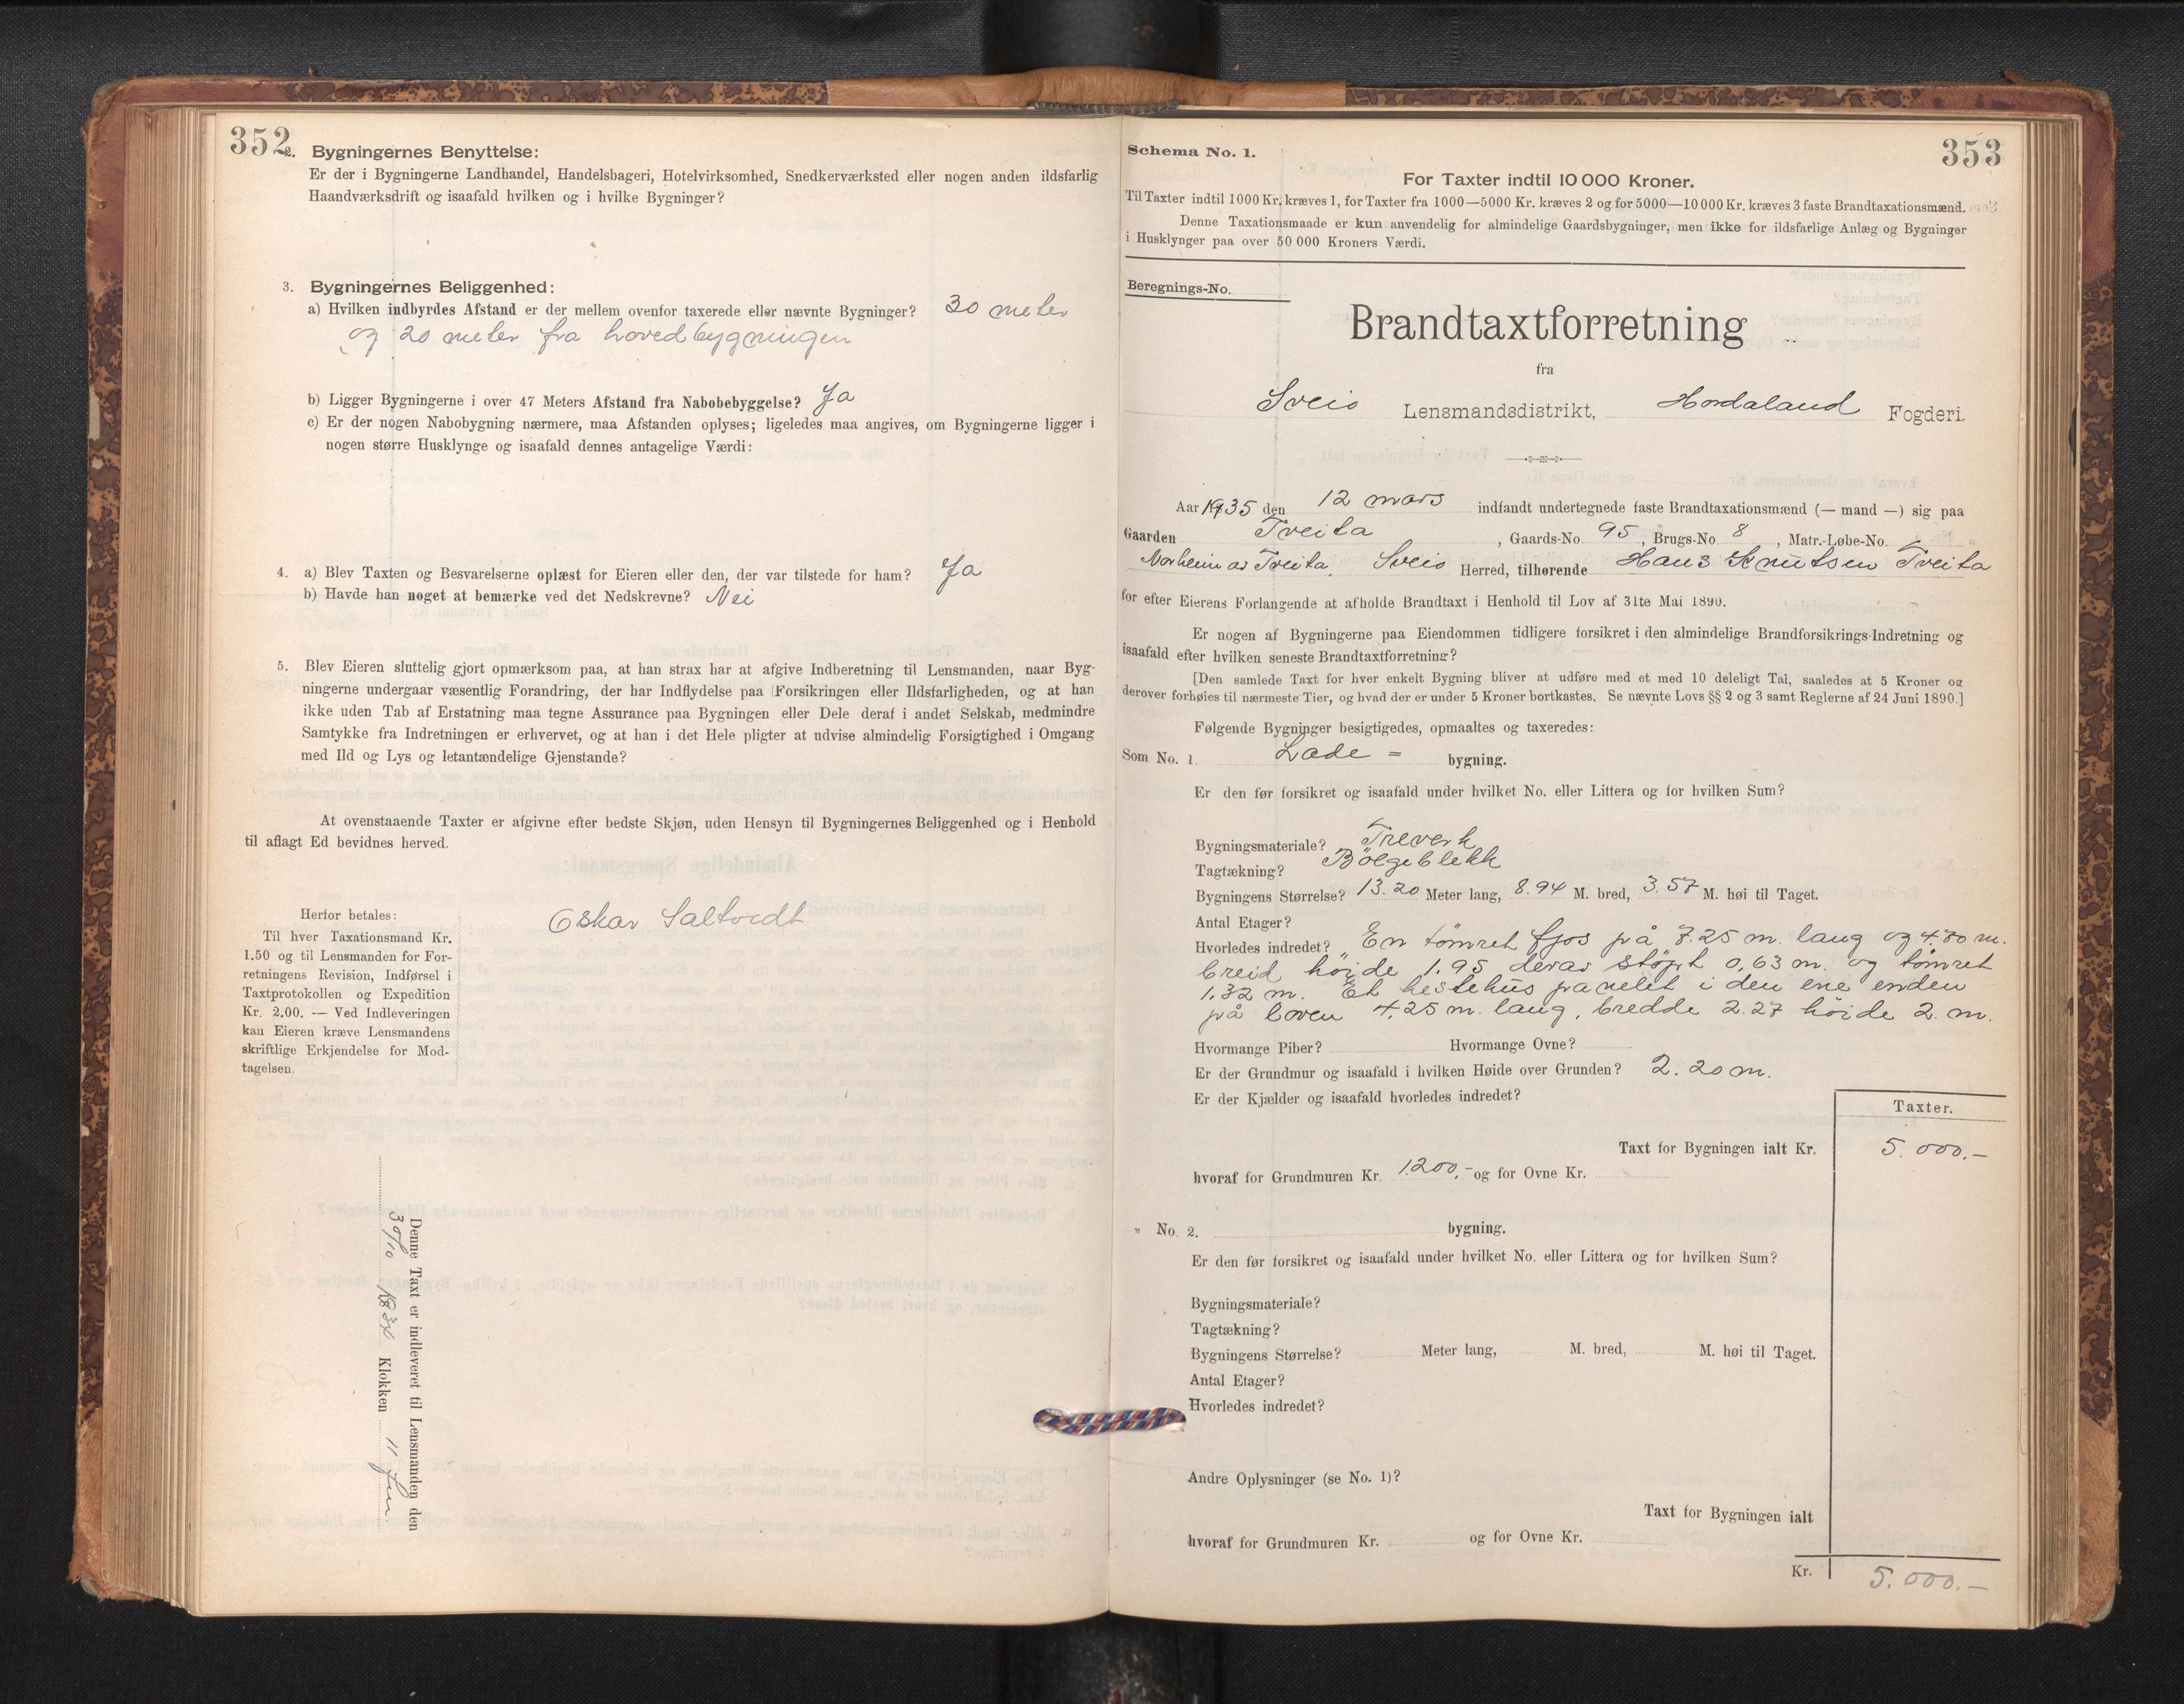 352
2. Bygningernes Benyttelse:
Er der i Bygningerne Landhandel, Handelsbageri, Hotelvirksomhed, Snedkerværksted eller nogen anden ildsfarlig
Haandværksdrift og isaafald hvilken og i hvilke Bygninger?
3. Bygningernes Beliggenhed:
a) Hvilken indbyrdes Afstand er der mellem ovenfor taxerede eller nævnte Bygninger? 30 meter
og 20 meter fra hovedbygningen
b) Ligger Bygningerne i over 47 Meters Afstand fra Nabobebyggelse? Ja
c) Er der nogen Nabobygning nærmere, maa Afstanden oplyses; ligeledes maa angives, om Bygningerne ligger i
nogen større Husklynge og isaafald dennes antagelige Værdi:
4. a) Blev Taxten og Besvarelserne oplæst for Eieren eller den, der var tilstede for ham? Ja
b) Havde han noget at bemærke ved det Nedskrevne? Nei
5. Blev Eieren sluttelig gjort opmærksom paa, at han strax har at afgive Indberetning til Lensmanden, naar Byg-
ningerne undergaar væsentlig Forandring, der har Indflydelse paa Forsikringen eller Ildsfarligheden, og at han
ikke uden Tab af Erstatning maa tegne Assurance paa Bygningen eller Dele deraf i andet Selskab, medmindre
Samtykke fra Indretningen er erhvervet, og at han i det Hele pligter at udvise almindelig Forsigtighed i Omgang
med Ild og Lys og letantændelige Gjenstande?
At ovenstaaende Taxter er afgivne efter bedste Skjøn, uden Hensyn til Bygningernes Beliggenhed og i Henhold
til aflagt Ed bevidnes herved.
Oskar Saltvedt
Herfor betales:
Til hver Taxationsmand Kr.
1.50 og til Lensmanden for For-
retningens Revision, Indførsel i
Taxtprotokollen og Expedition
Kr. 2.00. — Ved Indleveringen
kan Eieren kræve Lensmandens
skriftlige Erkjendelse for Mod-
tagelsen.
Denne Taxt er indleveret til Lensmanden den
30/10 Klokken 11
353
Schema No. 1.
For Taxter indtil 10 000 Kroner.
Til Taxter indtil 1000 Kr. kræves 1, for Taxter fra 1000—5000 Kr. kræves 2 og for 5000—10 000 Kr. kræves 3 faste Brandtaxationsmænd.
Denne Taxationsmaade er kun anvendelig for almindelige Gaardsbygninger, men ikke for ildsfarlige Anlæg og Bygninger
i Husklynger paa over 50 000 Kroners Værdi.
Beregnings-No.
Brandtaxtforretning
fra
Sveio Lensmandsdistrikt, Hordaland Fogderi.
Aar 1935 den 12 mars indfandt undertegnede faste Brandtaxationsmænd (— mand —) sig paa
Gaarden Tveita, Gaards-No. 95, Brugs-No. 8, Matr.-Løbe-No.
Norheim av Tveita, Sveio Herred, tilhørende Hans Knutsen Tveita
for efter Eierens Forlangende at afholde Brandtaxt i Henhold til Lov af 31te Mai 1890.
Er nogen af Bygningerne paa Eiendommen tidligere forsikret i den almindelige Brandforsikrings-Indretning og
isaafald efter hvilken seneste Brandtaxtforretning?
[Den samlede Taxt for hver enkelt Bygning bliver at udføre med et med 10 deleligt Tal, saaledes at 5 Kroner og
derover forhøies til nærmeste Tier, og hvad der er under 5 Kroner bortkastes. Se nævnte Lovs §§ 2 og 3 samt Reglerne af 24 Juni 1890.]
Følgende Bygninger besigtigedes, opmaaltes og taxeredes:
Som No. 1. Lade = bygning.
Er den før forsikret og isaafald under hvilket No. eller Littera og for hvilken Sum?
Bygningsmateriale? Treverk
Tagtækning? Bölgeblekk
Bygningens Størrelse? 13.20 Meter lang, 8.94 M. bred, 3.57 M. høi til Taget.
Antal Etager?
Hvorledes indredet? En tömret fjos på 7.25 m. lang og 4.70 m.
breid höide 1.95 derav stöpt 0,63 m. og tömret
1.32 m. Et hestehus panelet i den ene enden
på loven 4.25 m. lang, bredde 2.27 höide 2. m.
Hvormange Piber? Hvormange Ovne?
Er der Grundmur og isaafald i hvilken Høide over Grunden? 2.20 m.
Er der Kjælder og isaafald hvorledes indredet?
Taxter.
Taxt for Bygningen ialt Kr. 5.000.-
hvoraf for Grundmuren Kr. 1200,- og for Ovne Kr.
" No. 2. bygning.
Er den før forsikret og isaafald under hvilket No. eller Littera og for hvilken Sum?
Bygningsmateriale?
Tagtækning?
Bygningens Størrelse? Meter lang, M. bred, M. høi til Taget.
Antal Etager?
Hvorledes indredet?
Andre Oplysninger (se No. 1)?
Taxt for Bygningen ialt
hvoraf for Grundmuren Kr. og for Ovne Kr.
Kr. 5.000.-